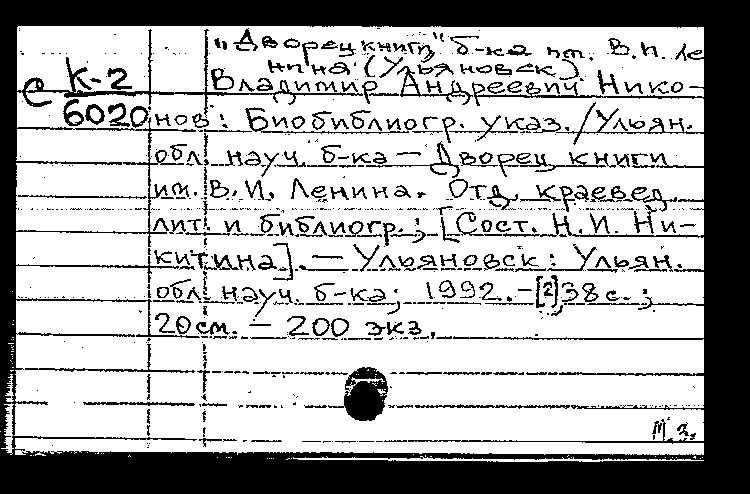 "Дворец книги" б-ка им. В.И. Ле
нина (Ульяновск)
С К-2
6020
Владимир Андреевич Нико-
нов: Биобиблиогр. указ./Ульян.
обл. науч. б-ка — Дворец книги
им. В.И. Ленина. Отд. краевед.
лит. и библиогр.; [Сост. Н.И. Ни-
китина]. — Ульяновск: Ульян.
обл. науч. б-ка; 1992. - [2], 38 с.;
20 см. — 200 экз.
М.З.